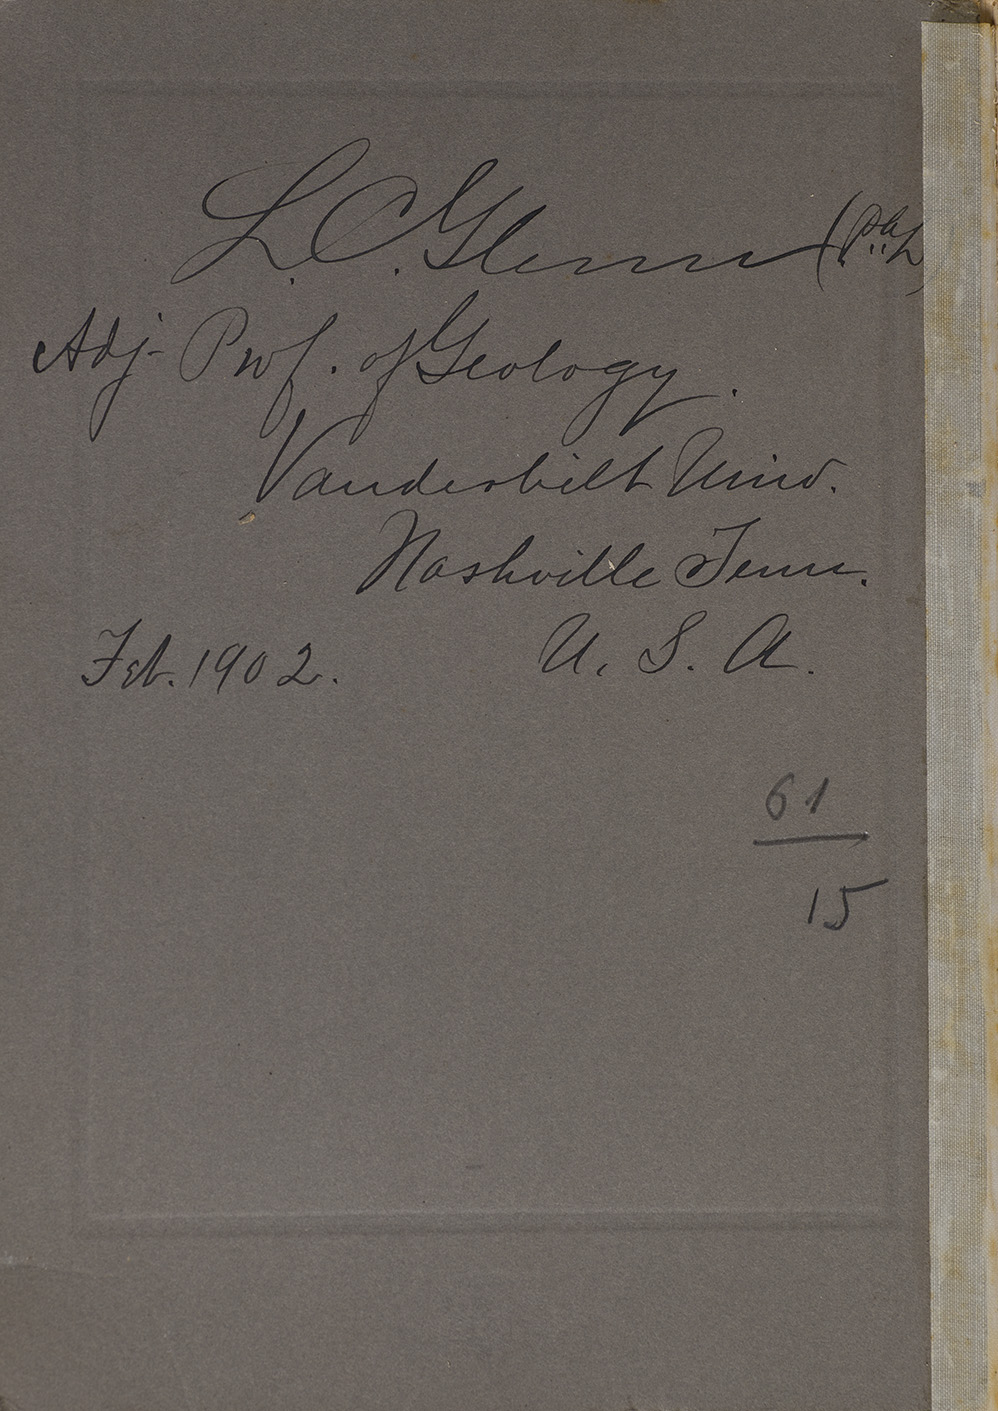 L. C. Glenn
Adj. Prof. of Geology.
Vanderbilt Univ.
Nashville Tenn.
Feb. 1902. U. S. A.
61
15